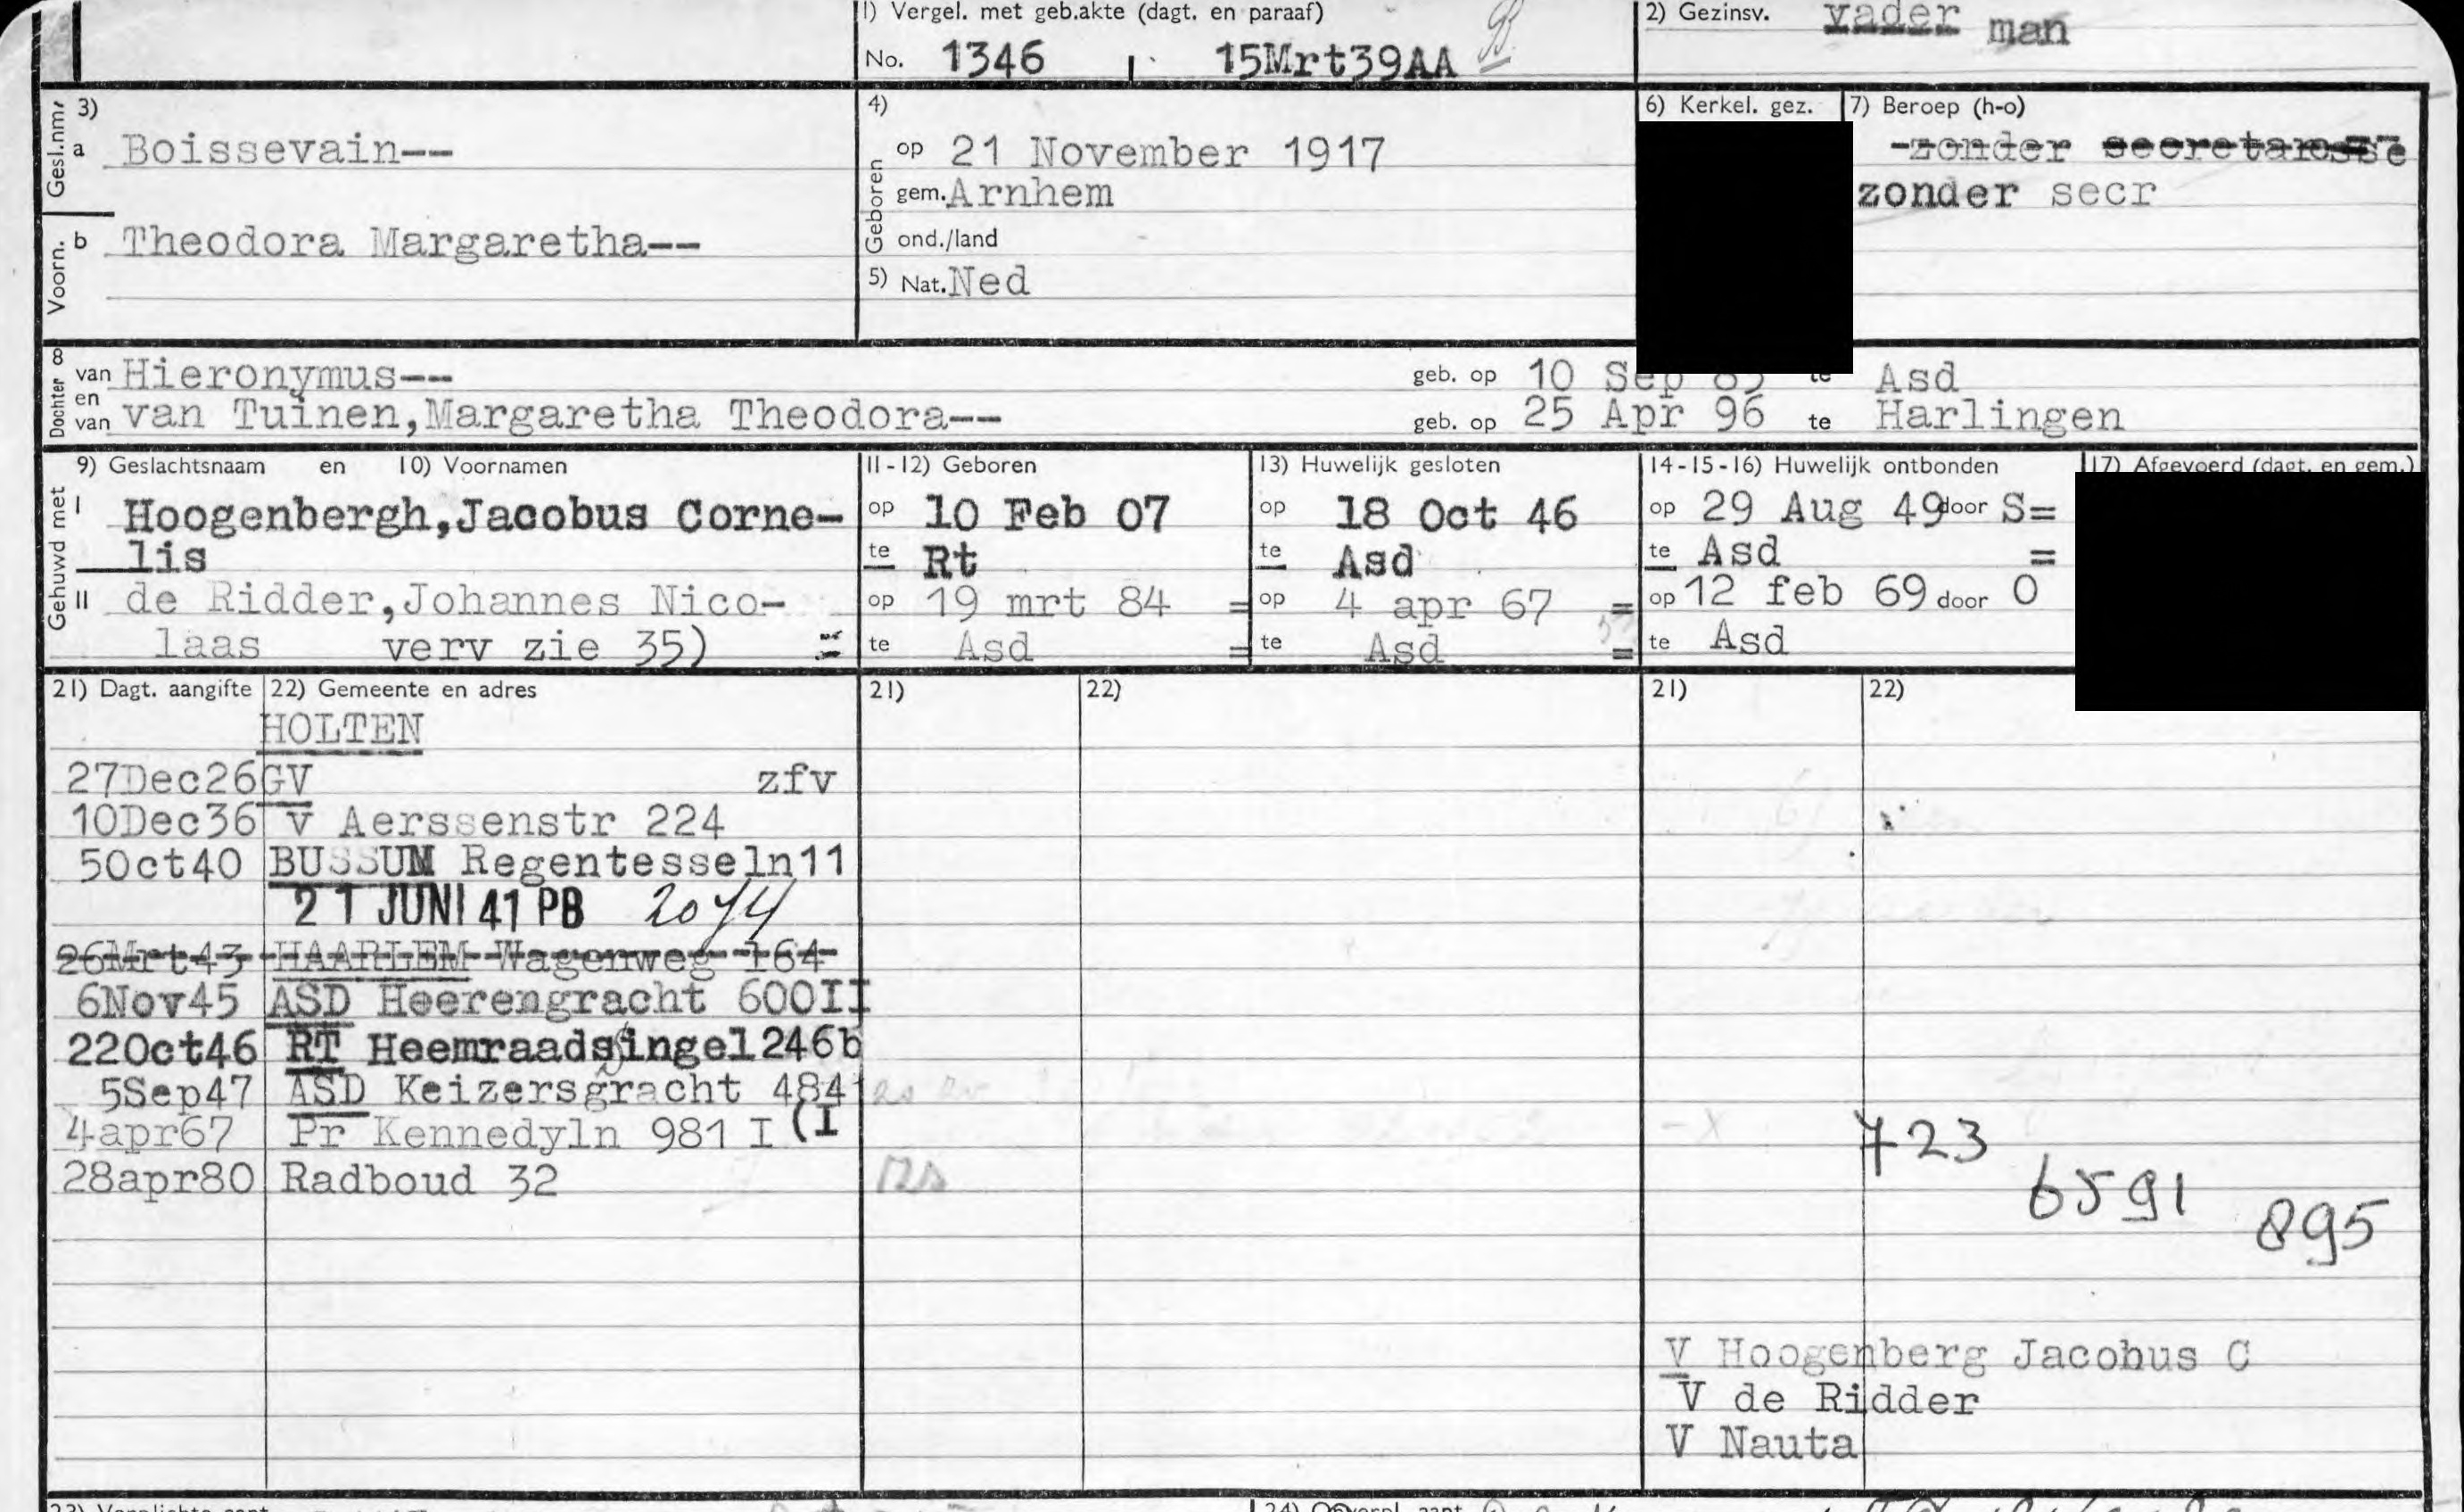 1) Vergel. met geb.akte (dagt. en paraaf)
No. 1346 15Mrt39AA
2) Gezinsv. vader man
Gesl.nm. 3)
a Boissevain--
Voorn. b Theodora Margaretha--
4)
Geboren
op 21 November 1917
gem. Arnhem
ond./land
5) Nat. Ned
6) Kerkel. gez.
7) Beroep (h-o)
-zonder secretaresse
zonder secr
Dochter 8
van Hieronymus-- geb. op 10 Sep te Asd
en
van van Tuinen,Margaretha Theodora-- geb. op 25 Apr 96 te Harlingen
Gehuwd met
9) Geslachtsnaam en 10) Voornamen
11-12) Geboren
13) Huwelijk gesloten
14-15-16) Huwelijk ontbonden
17) Afgevoerd (dagt. en gem.)
I Hoogenbergh,Jacobus Corne- op 10 Feb 07 op 18 Oct 46 op 29 Aug 49 door S=
lis te Rt te Asd te Asd =
II de Ridder,Johannes Nico- op 19 mrt 84 = op 4 apr 67 = op 12 feb 69 door O
laas verv zie 35) = te Asd = te Asd = te Asd
21) Dagt. aangifte 22) Gemeente en adres 21) 22) 21) 22)
HOLTEN
27Dec26 GV zfv
10Dec36 v Aerssenstr 224
5Oct40 BUSSUM Regentesseln11
21 JUNI 41 PB 2074
26Mrt43 HAARLEM Wagenweg 164
6Nov45 ASD Heerengracht 600II
22Oct46 RT Heemraadsingel246b
5Sep47 ASD Keizersgracht 484
(I
4apr67 Pr Kennedyln 981 I
28apr80 Radboud 32
723
6591
895
V Hoogenberg Jacobus C
V de Ridder
V Nauta